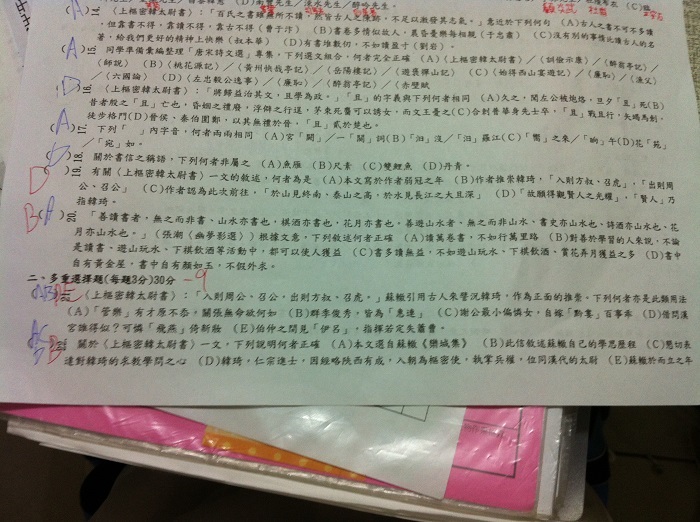 (A) 14. 〈上樞密韓太尉書〉：「百氏之書雖無所不讀，然皆古人之陳跡，不足以激發其志氣。」意近於下列何句 (A)古人之書不可不多讀
，但靠書不得，靠古不得（曹于汴） (B)書卷多情似故人，晨昏憂樂每相親（于忠肅） (C)沒有別的事情比讀古人的名
著，給我們更好的精神上快樂（叔本華） (D)有書堆數仞，不如讀盈寸（劉岩）。
(A) 15. 同學準備彙編整理「唐宋詩文選」專集，下列選文組合，何者完全正確 (A)〈上樞密韓太尉書〉／〈訓儉示康〉／〈醉翁亭記〉／
〈師說〉 (B)〈桃花源記〉／〈黃州快哉亭記〉／〈岳陽樓記〉／〈遊褒禪山記〉 (C)〈始得西山宴遊記〉／〈廉恥〉／〈漁父〉
／〈六國論〉 (D)〈左忠毅公逸事〉／〈廉恥〉／〈醉翁亭記〉／〈赤壁賦
(D) 16. 〈上樞密韓太尉書〉：「將歸益治其文，且學為政。」「且」的字義與下列何者相同 (A)久之，聞左公被炮烙，旦夕「且」死(B)
昔者殷之「且」亡也，昏姻之禮廢，浮僻之行逞，茅束死麕可以誘女，而文王憂之(C)合刺普華身先士卒，「且」戰且行，矢竭馬創，
徒步格鬥(D)晉侯、秦伯圍鄭，以其無禮於晉，「且」貳於楚也。
(A) 17. 下列「 」內字音，何者兩兩相同 (A)宮「闕」／一「闋」詞(B)「汩」沒／「汨」羅江(C)「嚮」之來／「晌」午(D)花「苑」
／「宛」如。
18. 關於書信之稱語，下列何者非屬之 (A)魚雁 (B)尺素 (C)雙鯉魚 (D)丹青。
D 19. 有關〈上樞密韓太尉書〉一文的敘述，何者為是 (A)本文寫於作者弱冠之年 (B)作者推崇韓琦，「入則方叔、召虎」，「出則周
公、召公」 (C)作者認為此次前往，「於山見終南、泰山之高，於水見長江之大且深」 (D)「故願得觀賢人之光耀」，「賢人」乃
指韓琦。
B (A) 20. 「善讀書者，無之而非書、山水亦書也，棋酒亦書也，花月亦書也。善遊山水者、無之而非山水、書史亦山水也、詩酒亦山水也、花
月亦山水也。」（張潮〈幽夢影選〉）根據文意，下列敘述何者正確 (A)讀萬卷書，不如行萬里路 (B)對善於學習的人來說，不論
是讀書、遊山玩水、下棋飲酒等活動中，都可以使人獲益 (C)書多讀無益，不如遊山玩水、下棋飲酒、賞花弄月獲益之多 (D)書中
自有黃金屋，書中自有顏如玉，不假外求。
二、多重選擇題(每題3分)30分 -9
〈上樞密韓太尉書〉：「入則周公、召公，出則方叔、召虎。」蘇轍引用古人來譬況韓琦，作為正面的推譽。下列何者亦是此類用法
(A)「管樂」有才原不忝，關張無命欲何如 (B)群季俊秀，皆為「惠連」 (C)謝公最小偏憐女，自嫁「黔婁」百事乖 (D)借問漢
宮誰得似？可憐「飛燕」倚新妝 (E)伯仲之間見「伊呂」，指揮若定失蕭曹。
關於〈上樞密韓太尉書〉一文，下列說明何者正確 (A)本文選自蘇轍《欒城集》 (B)此信敘述蘇轍自己的學思歷程 (C)懇切表
達對韓琦的求教學問之心 (D)韓琦，仁宗進士，因經略陝西有成，入朝為樞密使，執掌兵權，位同漢代的太尉 (E)蘇轍於而立之年